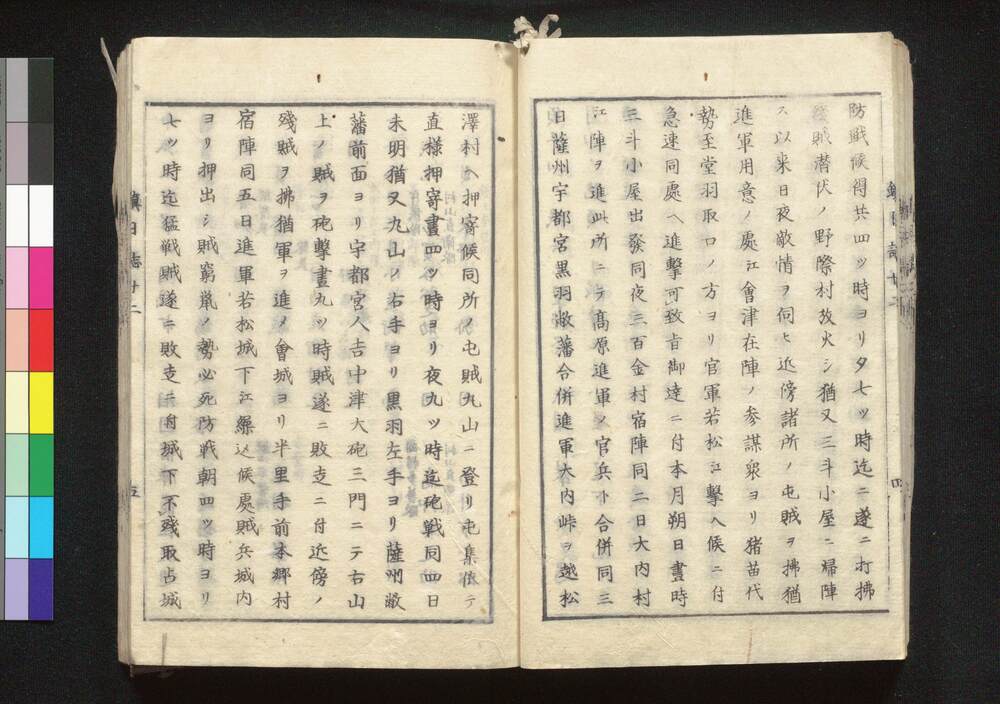 防戝候得共四ツ時ヨリ夕七ツ時迄ニ遂ニ打拂
残賊潜伏ノ野際村放火シ猶又三斗小屋ニ帰陣
ス以来日夜敵情ヲ伺ヒ近傍諸所ノ屯賊ヲ拂猶
進軍用意ノ處江會津在陣ノ参謀衆ヨリ猪苗代
勢至堂羽取口ノ方ヨリ官軍若松江撃入候ニ付
急速同處ヘ進撃可致旨御達ニ付本月朔日晝時
三斗小屋出發同夜三百金村宿陣同二日大内村
江陣ヲ進此所ニテ髙原進軍ノ官兵ト合併同三
日薩州宇都宮黒羽敝藩合併進軍大内峠ヲ越松
澤村ヘ押寄候同所ノ屯賊九山ニ登リ屯集依テ
直様押寄晝四ツ時ヨリ夜九ツ時迄砲戦同四日
未明猶又九山ノ右手ヨリ黒羽左手ヨリ薩州敝
藩前面ヨリ宇都宮人吉中津大砲三門ニテ右山
上ノ賊ヲ砲撃晝九ツ時賊遂ニ敗走ニ付近傍ノ
残賊ヲ拂猶軍ヲ進メ會城ヨリ半里手前本郷村
宿陣同五日進軍若松城下江繰込候處賊兵城内
ヨリ押出シ賊窮鼠ノ勢必死防戦朝四ツ時ヨリ
七ツ時迄猛戦賊遂ニ敗走ニ付城下不残取占城
鎮日誌廿二
四
五